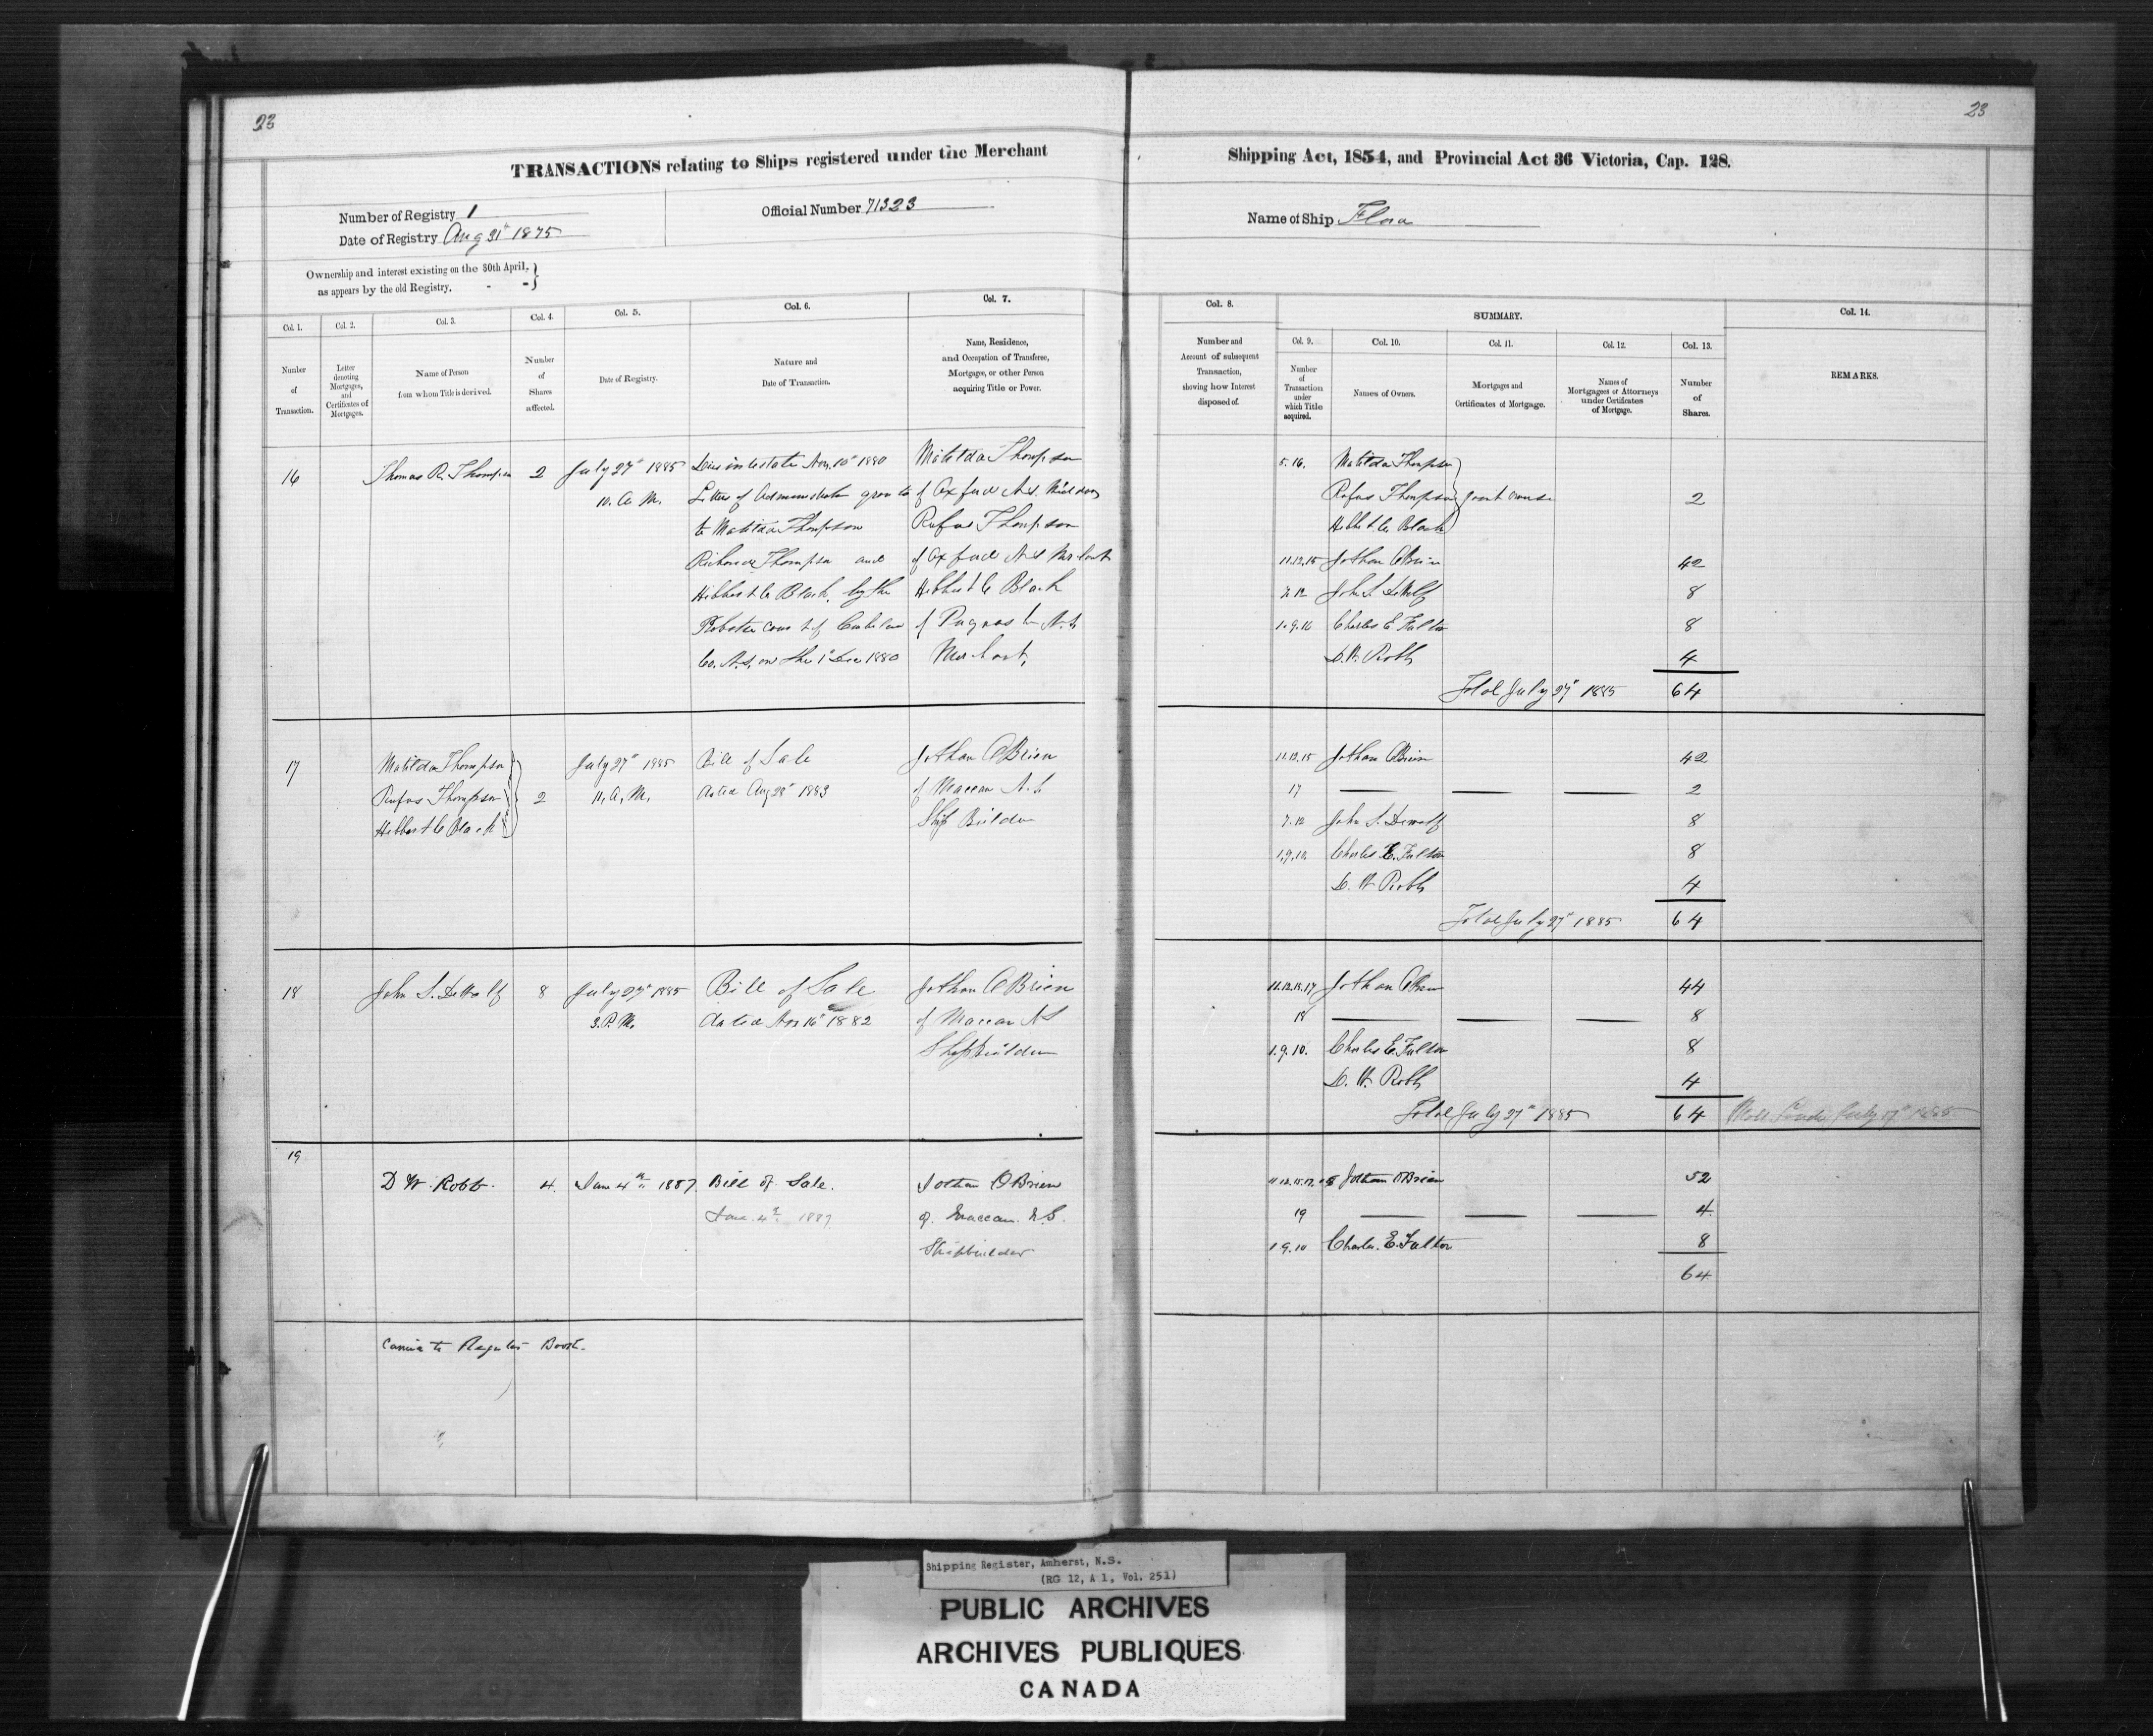 23
23
TRANSACTIONS relating to Ships registered under the Merchant
Shipping Act, 1854, and Provincial Act 36 Victoria, Cap. 128.
Number of Registry 1
Official Number 71323
Name of Ship Flora
Date of Registry Aug 31st 1875
Ownership and interest existing on the 30th April,
as appears by the old Registry. - -
Col. 1.
Number
of
Transaction.
Col. 2.
Letter
denoting
Mortgages,
and
Certificates of
Mortgages.
Col. 3.
Name of Person
from whom Title is derived.
Col. 4.
Number
of
Shares
affected.
Col. 5.
Date of Registry.
Col. 6.
Nature and
Date of Transaction.
Col. 7.
Name, Residence,
and Occupation of Transferee,
Mortgagee, or other Person
acquiring Title or Power.
Col. 8.
Number and
Account of subsequent
Transaction,
showing how Interest
disposed of.
SUMMARY.
Col. 9.
Number
of
Transaction
under
which Title
acquired.
Col. 10.
Names of Owners.
Col. 11.
Mortgages and
Certificates of Mortgage.
Col. 12.
Names of
Mortgagees or Attorneys
under Certificates
of Mortgage.
Col. 13.
Number
of
Shares.
Col. 14.
REMARKS.
16
Thomas R. Thompson
2
July 27th 1885
10. A. M.
Dies intestate Nov. 10th 1880
Letters of Administration granted
to Matilda Thompson
Thompson and
Black, by the
Probate Court of
Co. N.S. on the 1st Dec 1880
Matilda Thompson
of Oxford N.S. Widow
Rufus Thompson
of Oxford N.S. Merchant
Hibbert C Black
of Pugwash N.S.
Merchant,
5.16.
Matilda Thompson
Rufus Thompson
Hibbert C. Black
joint owners
2
11.12.15 Jothan O'Brien
42
7.12 John S. DeWolf
8
Charles E Fulton
8
D.W. Robb
4
Total July 27th 1885 64
17
Matilda Thompson
Rufus Thompson
Hibbert C Black
2
July 27th 1885
11. A. M.
Bill of Sale
dated Aug 28th 1883
Jothan O'Brien
of Maccan N.S.
Ship Builder
11.12.15 Jothan O'Brien
42
17
2
7.12 John S. Dewolf
8
1.9.10. Charles E. Fulton
8
D. W Robb
4
Total July 27th 1885 64
18
John S. DeWolf
8
July 27th 1885
3. P. M.
Bill of Sale
dated Nov 16th 1882
Jothan O'Brien
of Maccan NS
Shipbuilder
Jothan O'Brien
44
18
8
1.9.10. Charles E. Fulton
8
D. W. Robb
4
Total July 27th 1885 64
19
D W. Robb.
4.
Jan 4th 1887
Bill of Sale.
Jan. 4th 1887
Jothan O'Brien
of Maccan. N.S.
Shipbuilder
Jotham O'Brien
52
19
4.
1.9.10 Charles. E. Fulton
8
64
Register Book.
Shipping Register, Amherst, N.S.
(RG 12, A 1, Vol. 251)
PUBLIC ARCHIVES
ARCHIVES PUBLIQUES
CANADA